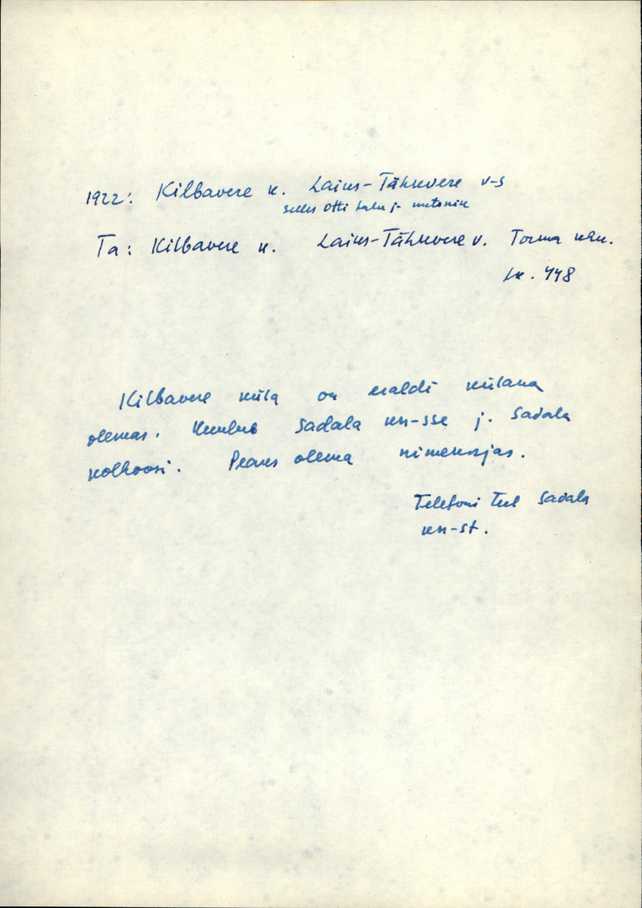 1922: Kilbavere k. Laius-Tähkvere v-s
selles Otti talu j. metsnik
Ta: Kilbavere k. Laius-Tähkvere v. Torma khk.
lk. 448
Kilbavere küla on eraldi külana
olemas. Kuulub Sadala kn-sse j. Sadala
kolhoosi. Peaks olema nimekirjas.
Telefoni teel Sadala
kn-st.